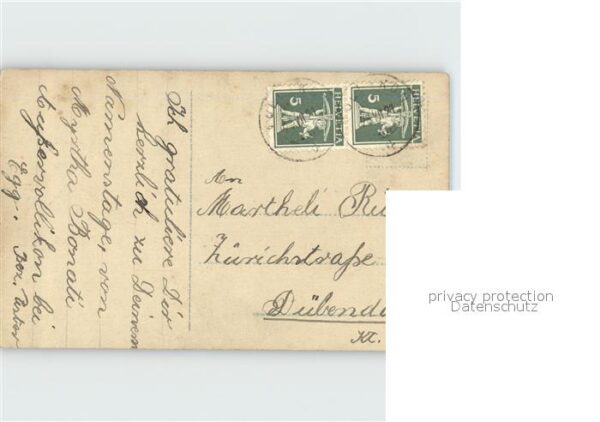 Ich gratuliere Dir
herzlich zu Deinem
Namenstage, von
Myrtha Bonati
Ausservollikon bei
Egg.
5
HELVETIA
5
HELVETIA
An
Martheli
Zürichstraße
Dübendo
Kt.
privacy protection
Datenschutz